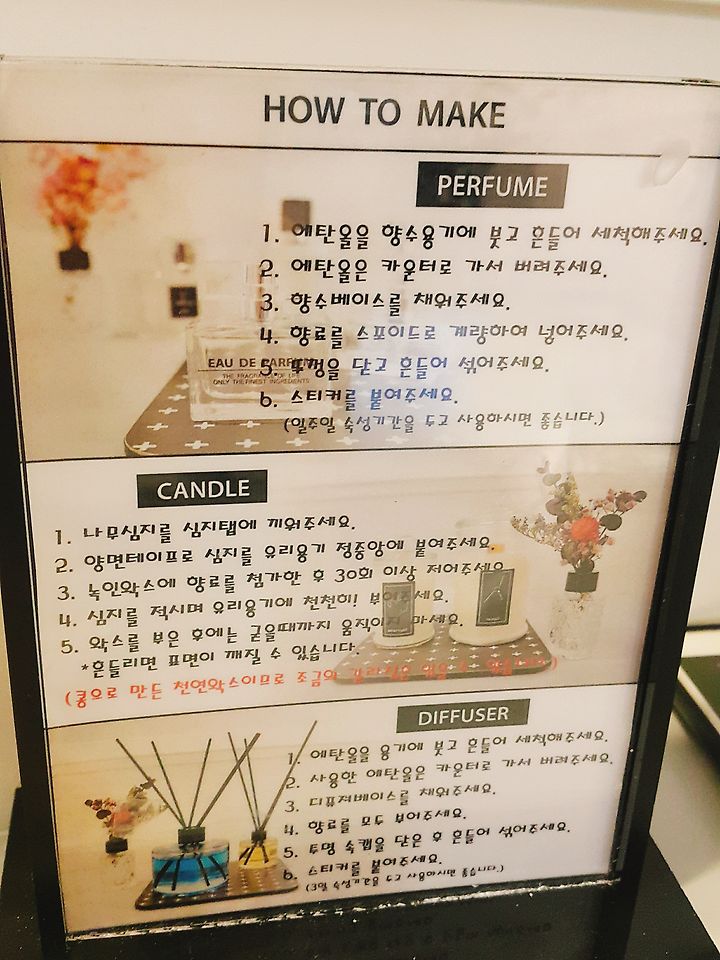 HOW TO MAKE
PERFUME
1. 에탄올을 향수용기에 붓고 흔들어 세척해주세요.
2. 에탄올은 카운터로 가서 버려주세요.
3. 향수베이스를 채워주세요.
4. 향료를 스포이드로 계량하여 넣어주세요.
5. 뚜껑을 닫고 흔들어 섞어주세요.
6. 스티커를 붙여주세요.
(일주일 숙성기간을 두고 사용하시면 좋습니다.)
EAU DE PARFUM
THE FRAGRANCE OF LIFE
ONLY THE FINEST INGREDIENTS
CANDLE
1. 나무심지를 심지탭에 끼워주세요.
2. 양면테이프로 심지를 유리용기 정중앙에 붙여주세요.
3. 녹인왁스에 향료를 첨가한 후 30회 이상 저어주세요.
4. 심지를 적시며 유리용기에 천천히! 부어주세요.
5. 왁스를 부은 후에는 굳을때까지 움직이지 마세요.
*흔들리면 표면이 깨질 수 있습니다.
(콩으로 만든 천연왁스이므로 조금의
DIFFUSER
1. 에탄올을 용기에 붓고 흔들어 세척해주세요.
2. 사용한 에탄올은 카운터로 가서 버려주세요.
3. 디퓨져베이스를 채워주세요.
4. 향료를 모두 부어주세요.
5. 투명 속캡을 닫은 후 흔들어 섞어주세요.
6. 스티커를 붙여주세요.
(3일 숙성기간을 두고 사용하시면 좋습니다.)